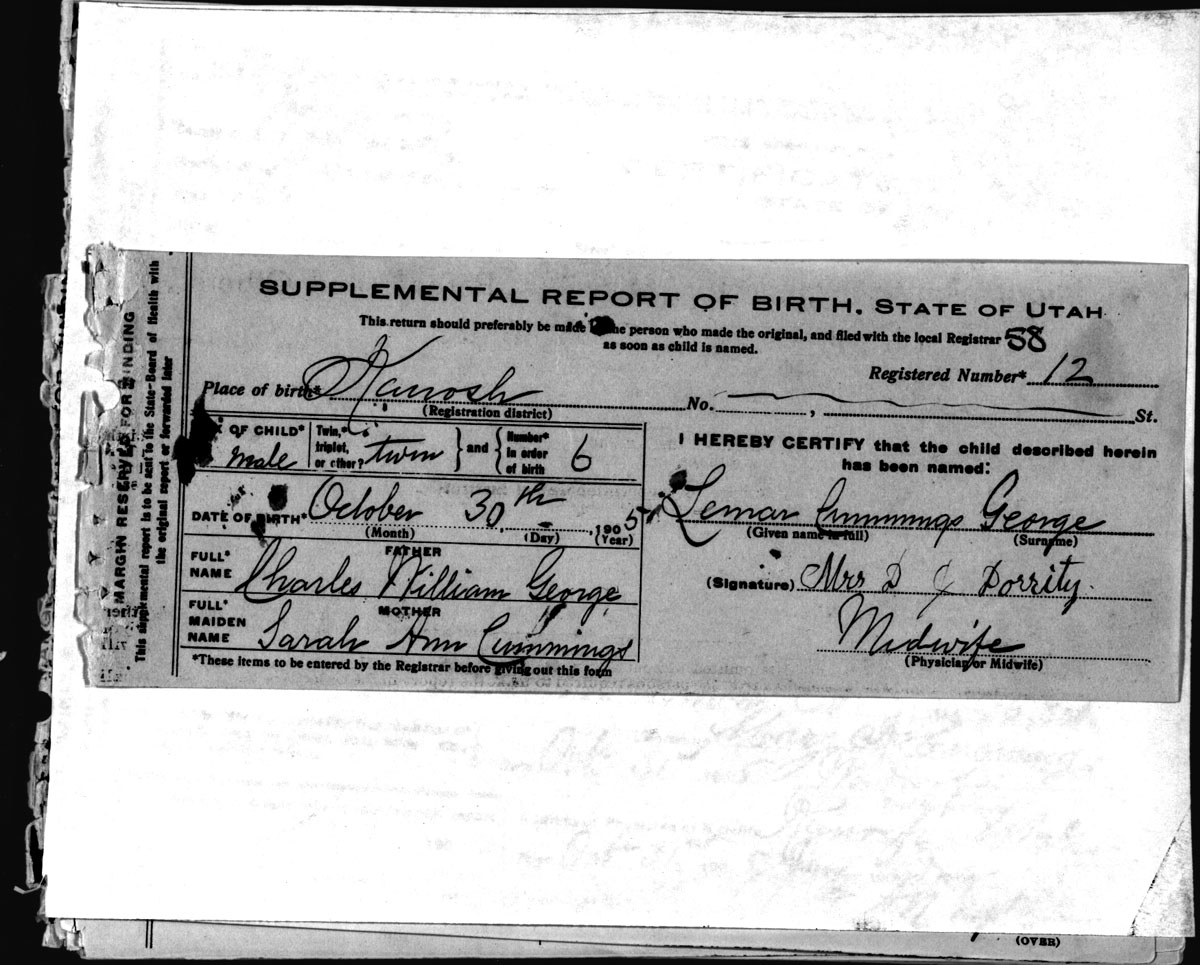 SUPPLEMENTAL REPORT OF BIRTH. STATE OF UTAH
This return should preferably be made the person who made the original, and filed with the local Registrar
as soon as child is named.
58
Registered Number* 12
Place of birth* Kanosh No. , St.
(Registration district)
OF CHILD* male Twin,* triplet, or other? twin } and { Number* in order of birth 6
DATE OF BIRTH* October 30th, 1905
(Month) (Day) (Year)
FATHER
FULL* NAME Charles William George
MOTHER
FULL* MAIDEN NAME Sarah Ann Cummings
*These items to be entered by the Registrar before giving out this form
I HEREBY CERTIFY that the child described herein
has been named:
Lemar Cummings George
(Given name in full) (Surname)
(Signature) Mrs D C Dorrity.
Midwife
(Physician or Midwife)
MARGIN RESERVED FOR BINDING
This supplemental report is to be sent to the State Board of Health with
the original report or forwarded later
(OVER)